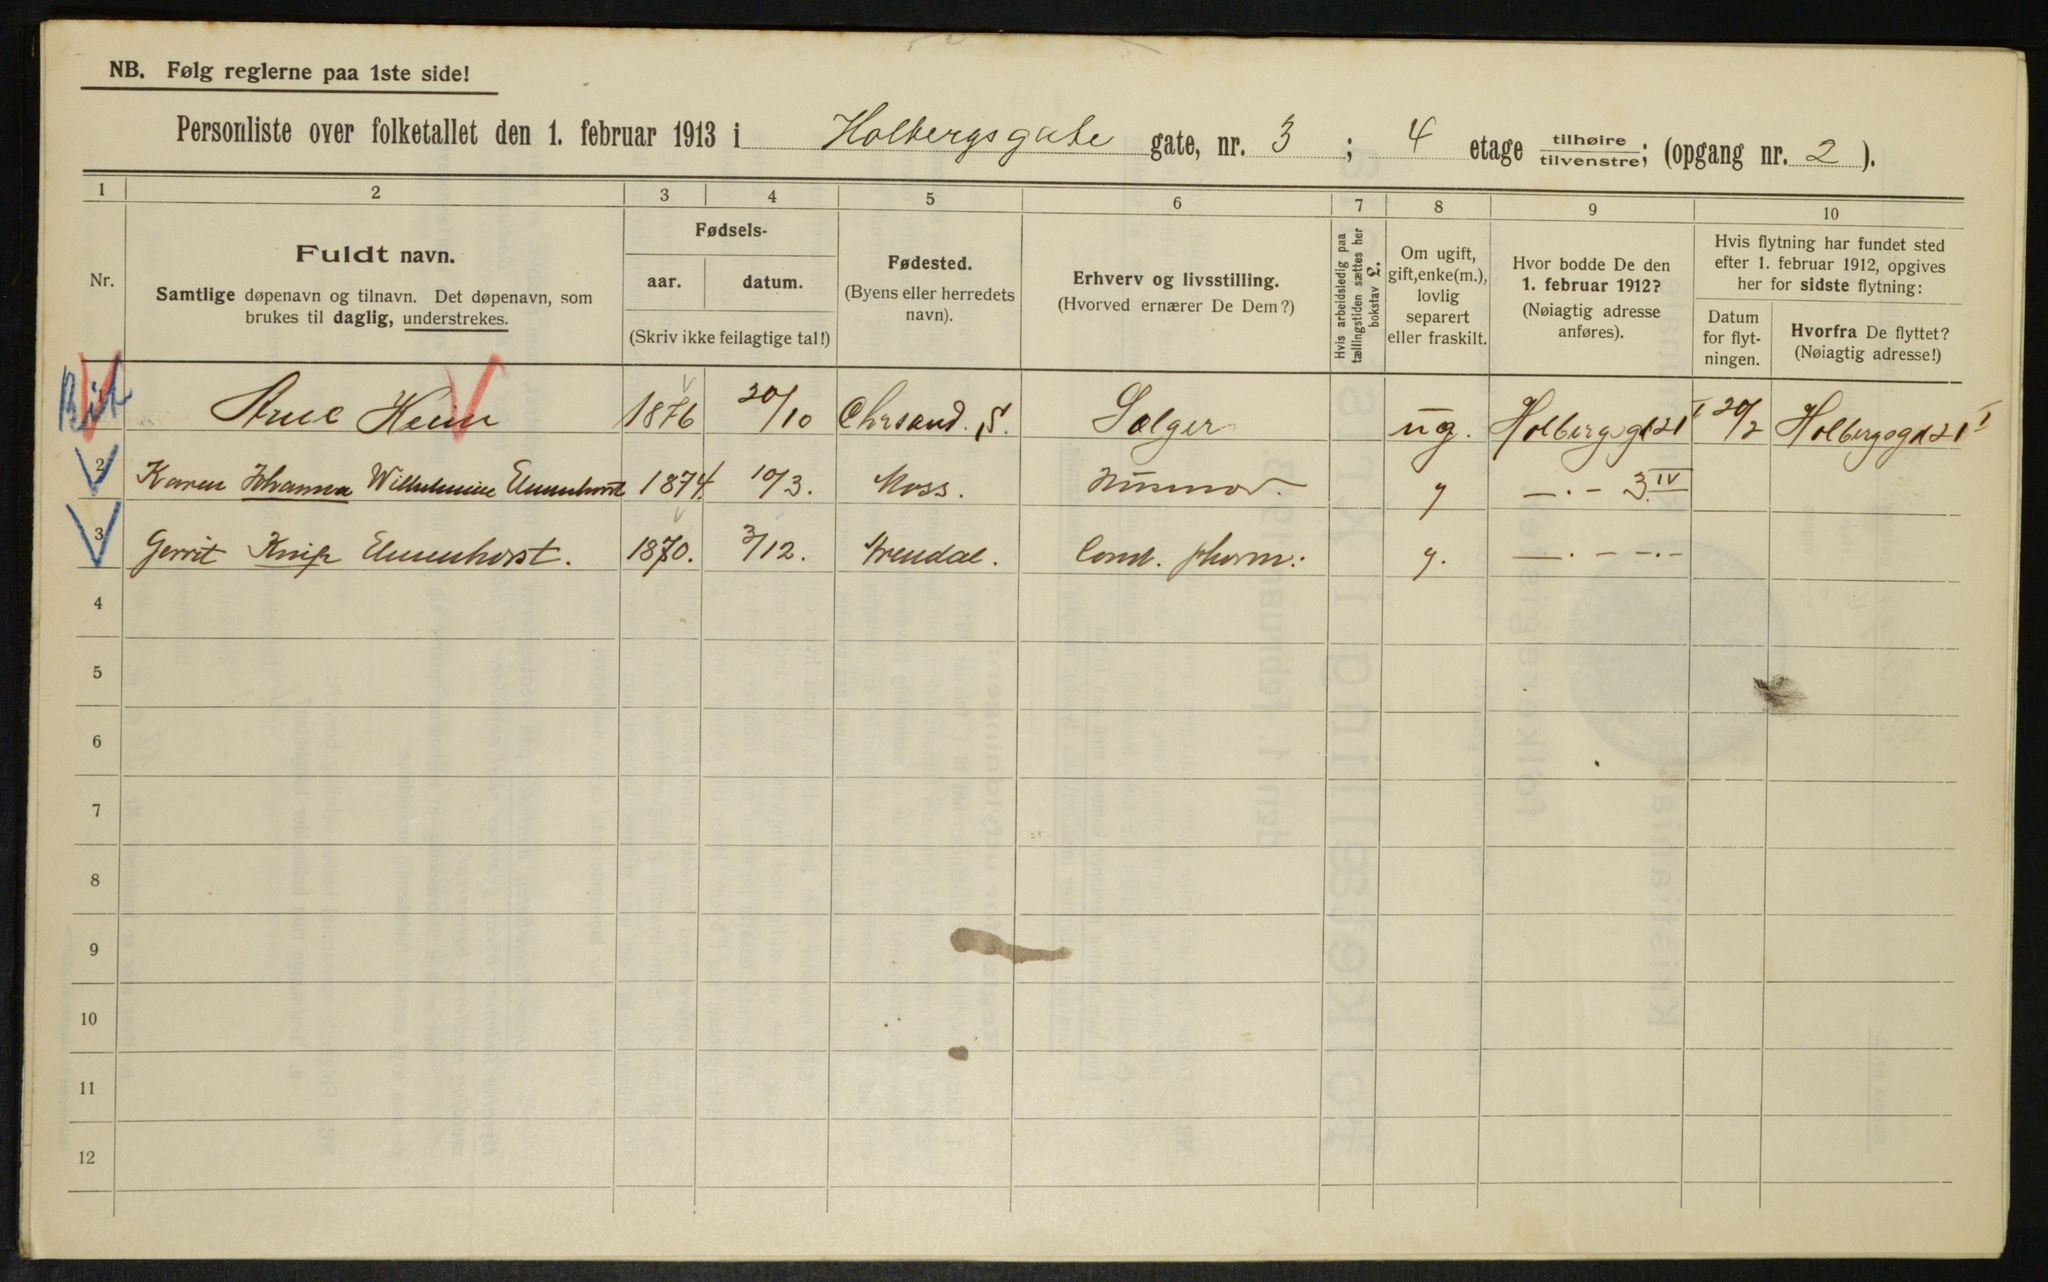 NB. Følg reglerne paa 1ste side!
Personliste over folketallet den 1. februar 1913 i Holbergsgate gate, nr. 3; 4 etage tilhøire/tilvenstre; (opgang nr. 2).
1 2 3 4 5 6 7 8 9 10
Nr.
Fuldt navn.
Samtlige døpenavn og tilnavn. Det døpenavn, som
brukes til daglig, understrekes.
Fødsels-
aar. datum.
(Skriv ikke feilagtige tal!)
Fødested.
(Byens eller herredets
navn).
Erhverv og livsstilling.
(Hvorved ernærer De Dem?)
Hvis arbeidsledig paa
tællingstiden sættes her
bokstav L.
Om ugift,
gift, enke(m.),
lovlig
separert
eller fraskilt.
Hvor bodde De den
1. februar 1912?
(Nøiagtig adresse
anføres).
Hvis flytning har fundet sted
efter 1. februar 1912, opgives
her for sidste flytning:
Datum
for flyt-
ningen.
Hvorfra De flyttet?
(Nøiagtig adresse!)
Arne Heim 1876 20/10 Chrsand. S. Sælger ug. Holbergsgd 21 I 20/2 Holbergsgd 21 I
2 Karen Johanna Wilhelmine Elmenhorst 1874 10/3. Moss. Husmor. g —.— 3 IV
3 Gerrit Knip Elmenhorst. 1870. 3/12. Arendal. Cand. pharm. g. —.— —.—
4
5
6
7
8
9
10
11
12